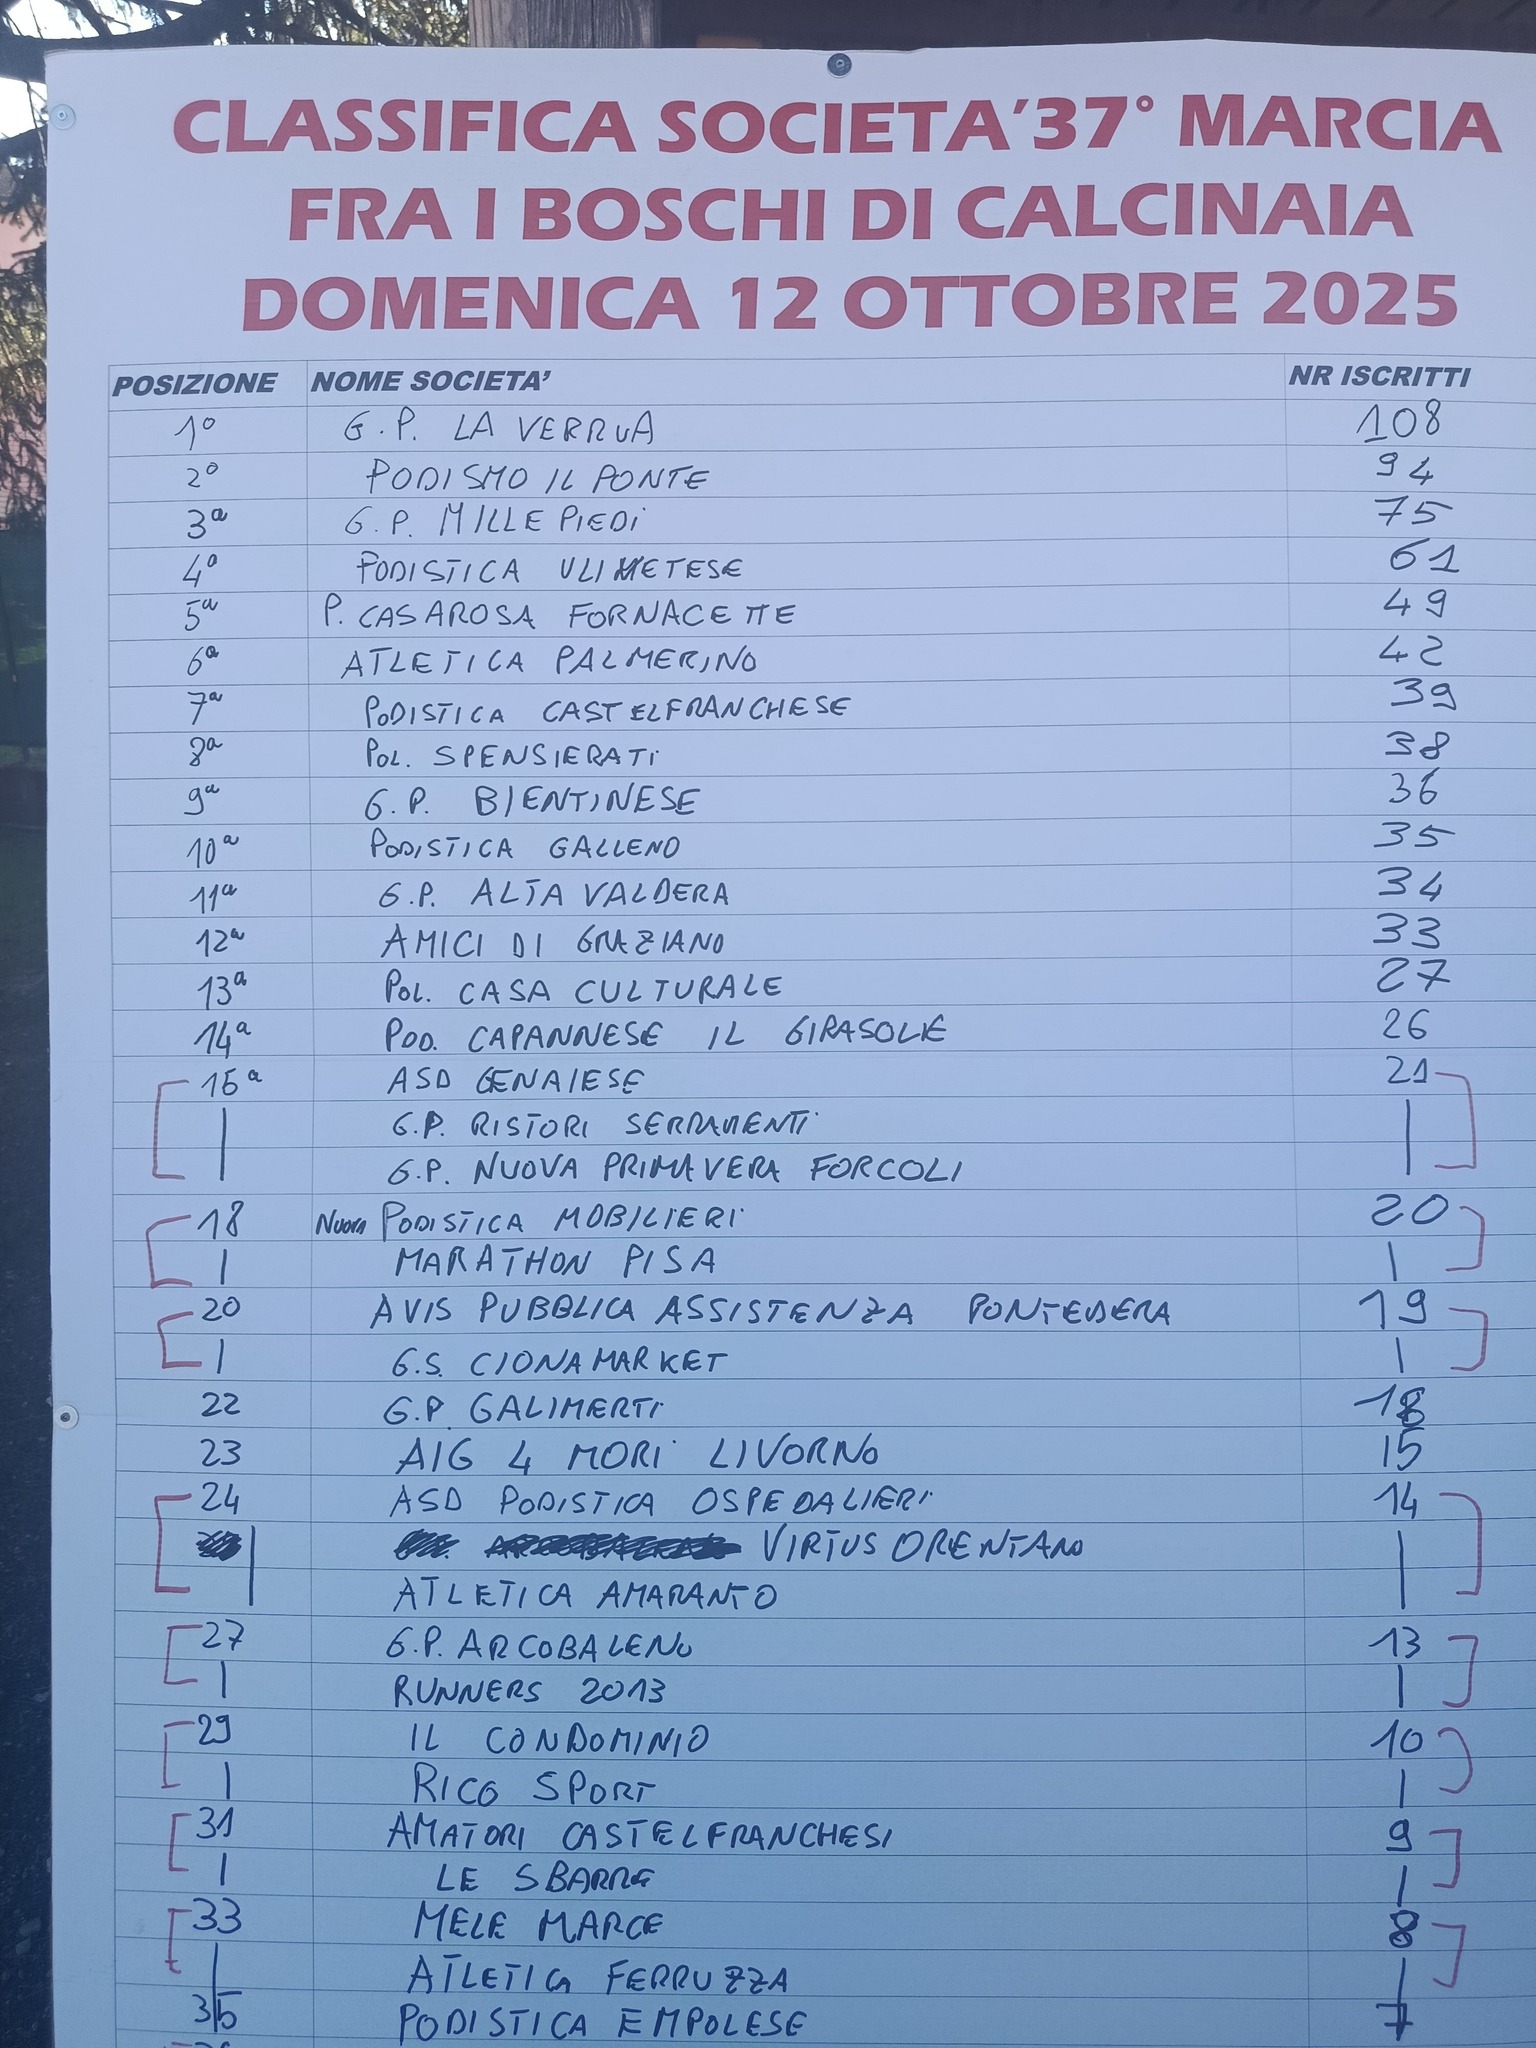 CLASSIFICA SOCIETA'37° MARCIA
FRA I BOSCHI DI CALCINAIA
DOMENICA 12 OTTOBRE 2025
POSIZIONE NOME SOCIETA' NR ISCRITTI
1° G.P. LA VERRUA 108
2° PODISMO IL PONTE 94
3ª G.P. MILLE PIEDI 75
4ª PODISTICA ULIMETESE 61
5ª P. CASAROSA FORNACETTE 49
6ª ATLETICA PALMERINO 42
7ª PODISTICA CASTELFRANCHESE 39
8ª POL. SPENSIERATI 38
9ª G.P. BIENTINESE 36
10ª PODISTICA GALLENO 35
11ª G.P. ALTA VALDERA 34
12ª AMICI DI GRAZIANO 33
13ª POL. CASA CULTURALE 27
14ª POD. CAPANNESE IL GIRASOLE 26
15ª ASD GENAIESE 21
G.P. RISTORI SERRAMENTI
G.P. NUOVA PRIMAVERA FORCOLI
18 NUOVA PODISTICA MOBILIERI 20
MARATHON PISA
20 AVIS PUBBLICA ASSISTENZA PONTEDERA 19
G.S. CIONAMARKET
22 G.P. GALIMERTI 18
23 AIG 4 MORI LIVORNO 15
24 ASD PODISTICA OSPEDALIERI 14
VIRTUS ORENTANO
ATLETICA AMARANTO
27 G.P. ARCOBALENO 13
RUNNERS 2013
29 IL CONDOMINIO 10
RICO SPORT
31 AMATORI CASTELFRANCHESI 9
LE SBARRE
33 MELE MARCE 8
ATLETICA FERRUZZA
35 PODISTICA EMPOLESE 7